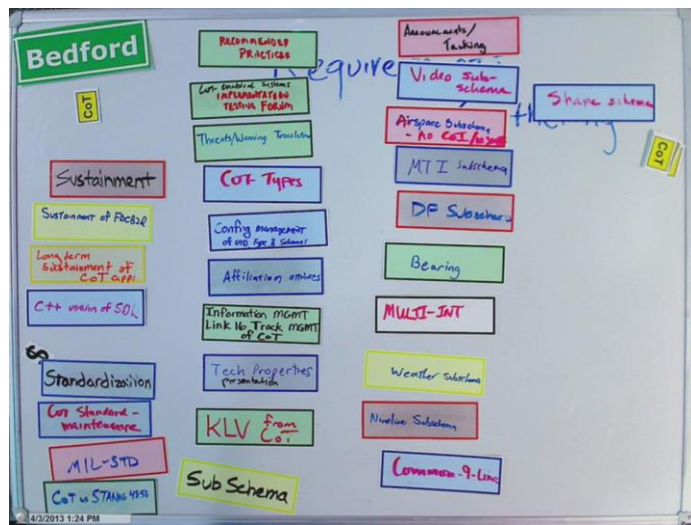 Bedford
CoT
Sustainment
Sustainment of FBCB2Q
Long term
sustainment of
CoT apps
C++ version of SDK
Standardization
CoT Standard -
maintenance
MIL-STD
CoT vs STANAG 4586
RECOMMENDED
PRACTICES
CoT-enabled systems
IMPLEMENTATION
TESTING FORUM
Threats/Warning Translation
CoT Types
Config management
of UID Type & Schemas
Affiliation attributes
Information MGMT
Link 16 Track MGMT
of CoT
Tech Properties
presentation
KLV from
CoT
Sub Schema
Require
Announcements/
Tasking
Video Sub-
schema
Airspace Subschema
- no CoI
MTI Subschema
DF Subschema
Bearing
MULTI-INT
Weather Subschema
Nineline Subschema
Common-9-Line
Shape schema
CoT
4/3/2013 1:24 PM